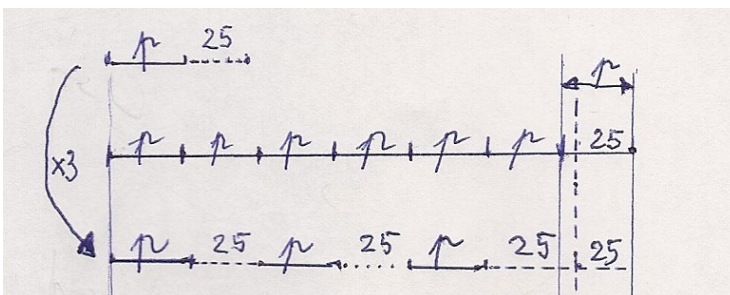 p 25
p
p p p p p p 25
x3
p 25 p 25 p 25 25